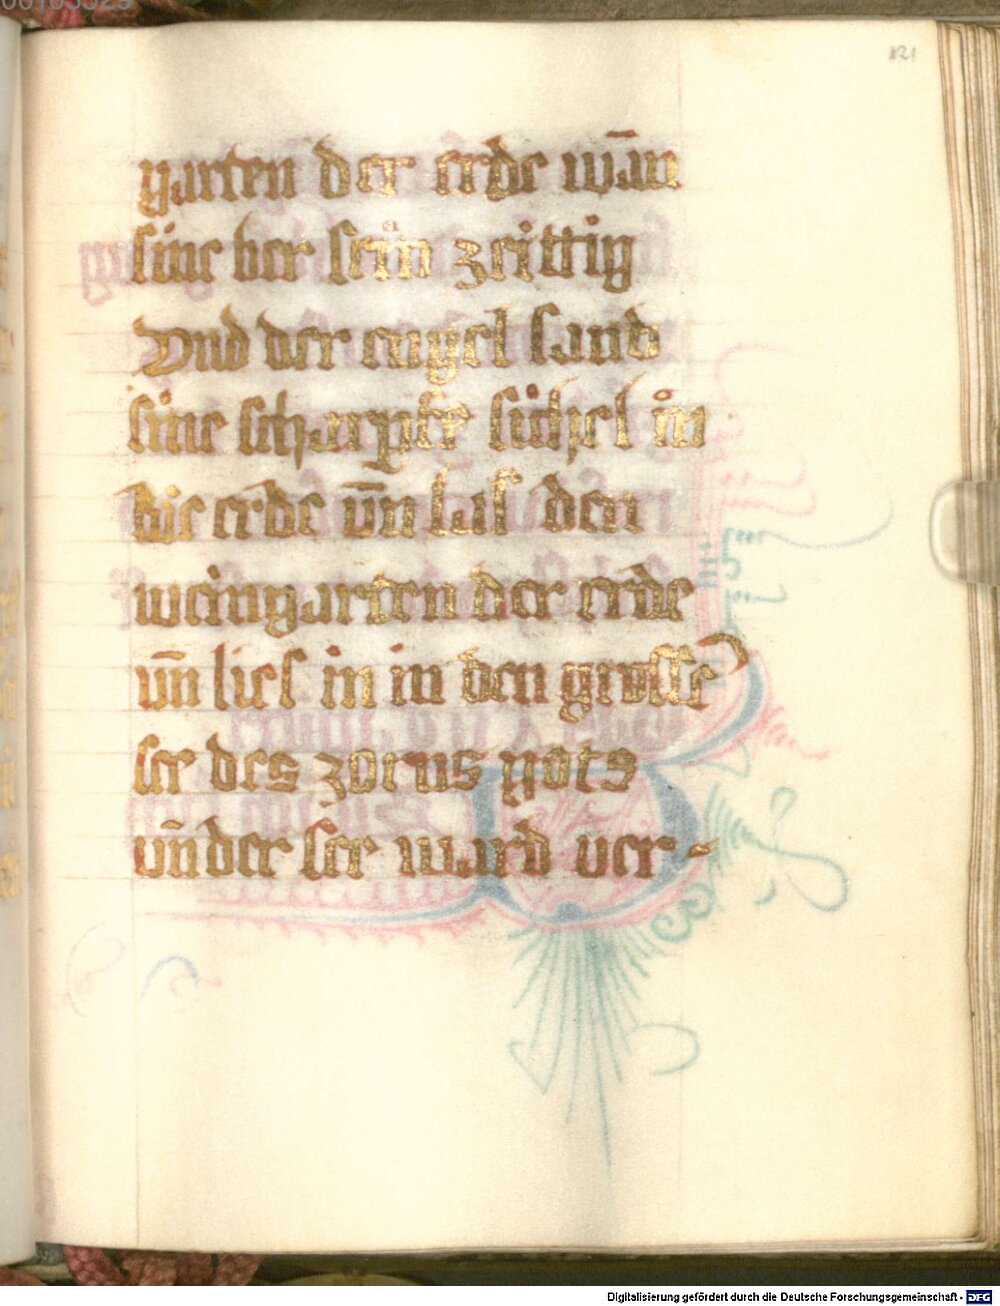 121
garten der erde wān
sine ber sein zeittig
Vnd der engel sand
sine scharpfe sichel in
die erde vn̄ las den
weingarten der erde
vn̄ lies in in den grosse
ser des zorns gots
vn̄ der ser ward ver-
Digitalisierung gefördert durch die Deutsche Forschungsgemeinschaft - DFG